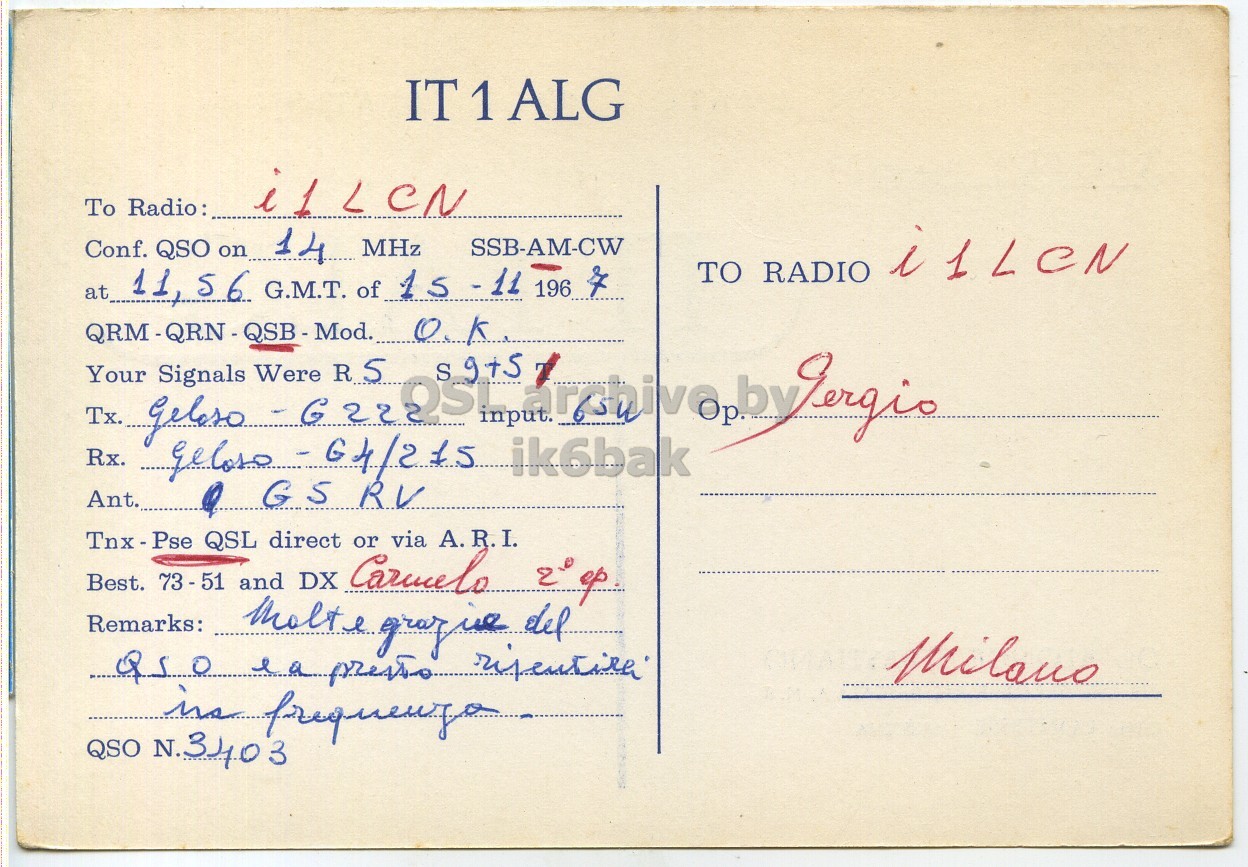 IT1ALG
To Radio: i1LCN
Conf. QSO on 14 MHz SSB-AM-CW
at 11,56 G.M.T. of 15-11 1967
QRM-QRN-QSB-Mod. O.K.
Your Signals Were R 5 S 9+5 T
Tx. Geloso - G222 input. 65W
Rx. Geloso - G4/215
Ant. G5RV
Tnx-Pse QSL direct or via A.R.I.
Best. 73-51 and DX Carmelo 2° op.
Remarks: Molte grazie del
QSO e a presto risentirci
in frequenza.
QSO N. 3403
TO RADIO i1LCN
Op. Sergio
Milano
QSL archive by
ik6bak